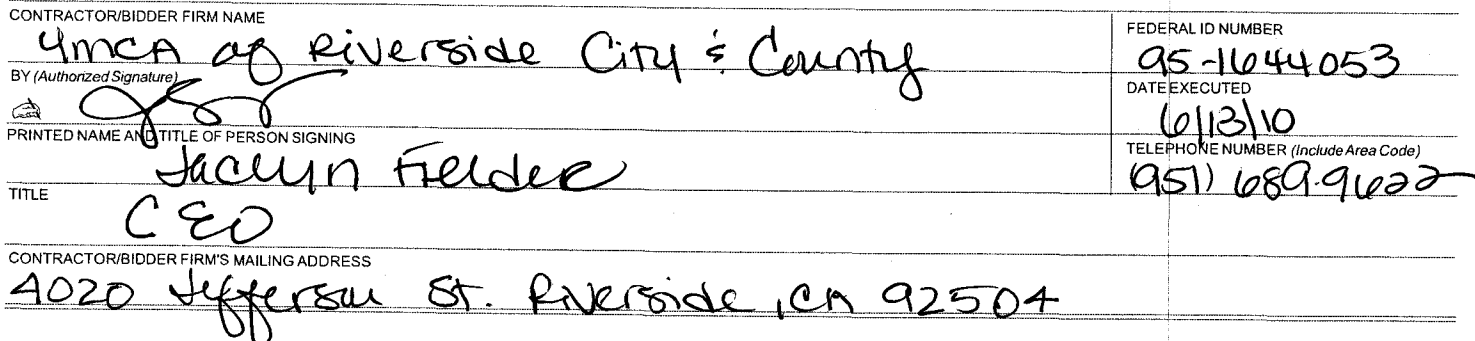 CONTRACTOR/BIDDER FIRM NAME
YMCA of Riverside City & County
FEDERAL ID NUMBER
95-1644053
BY (Authorized Signature)
DATE EXECUTED
6/13/10
PRINTED NAME AND TITLE OF PERSON SIGNING
Jaclyn Fielder
TELEPHONE NUMBER (Include Area Code)
(951) 689-9622
TITLE
CEO
CONTRACTOR/BIDDER FIRM'S MAILING ADDRESS
4020 Jefferson St. Riverside, CA 92504